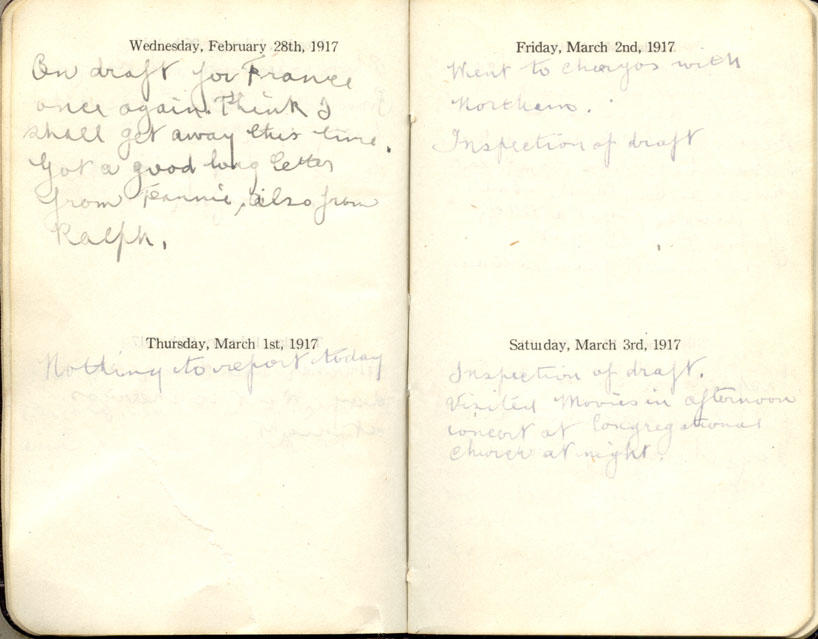 Wednesday, February 28th, 1917
On draft for France
once again. Think I
shall get away this time.
Got a good long letter
from Jeannie, also from
Ralph.
Thursday, March 1st, 1917
Nothing to report today
Friday, March 2nd, 1917
Went to with
Inspection of draft
Saturday, March 3rd, 1917
Inspection of draft.
Visited Movies in afternoon
concert at Congregational
Church at night.